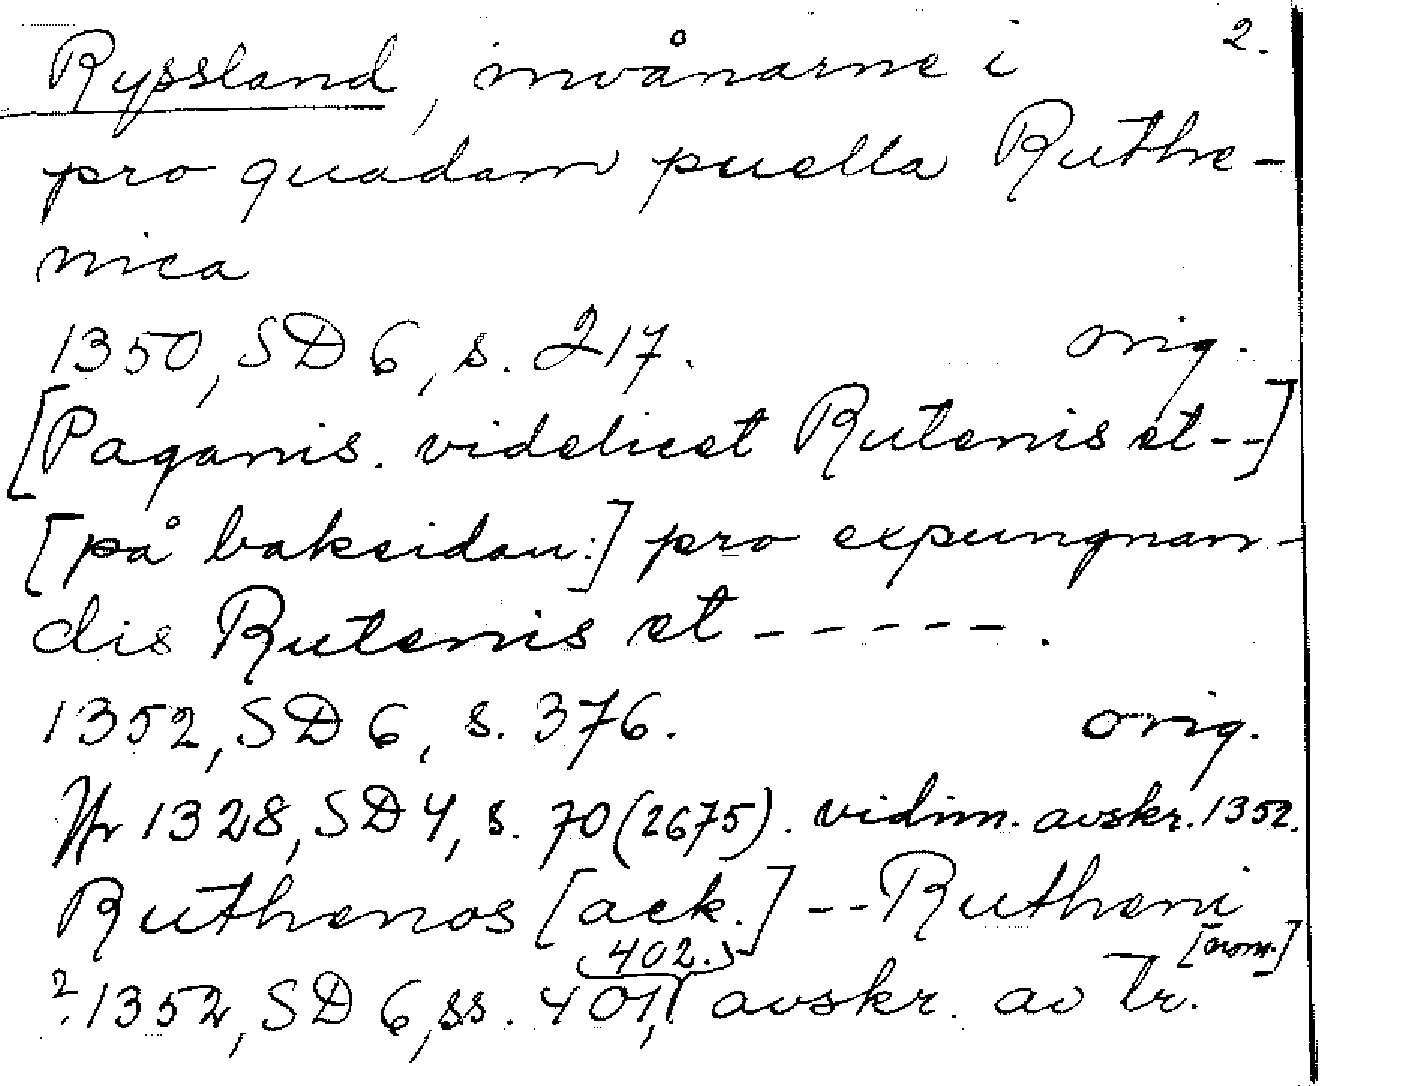 Ryssland, invånarne i 2.
pro quadam puella Ruthe-
nica
1350, SD 6, s. 217. orig.
[Paganis. videlicet Rutenis et--]
[på baksidan:] pro expungnan-
dis Rutenis et -----.
1352, SD 6, s. 376. orig.
Jfr 1328, SD 4, s. 70 (2675). vidim. avskr. 1352.
Ruthenos [ack.] -- Rutheni [nom.]
? 1352, SD 6, ss. 401, 402. avskr. av tr.